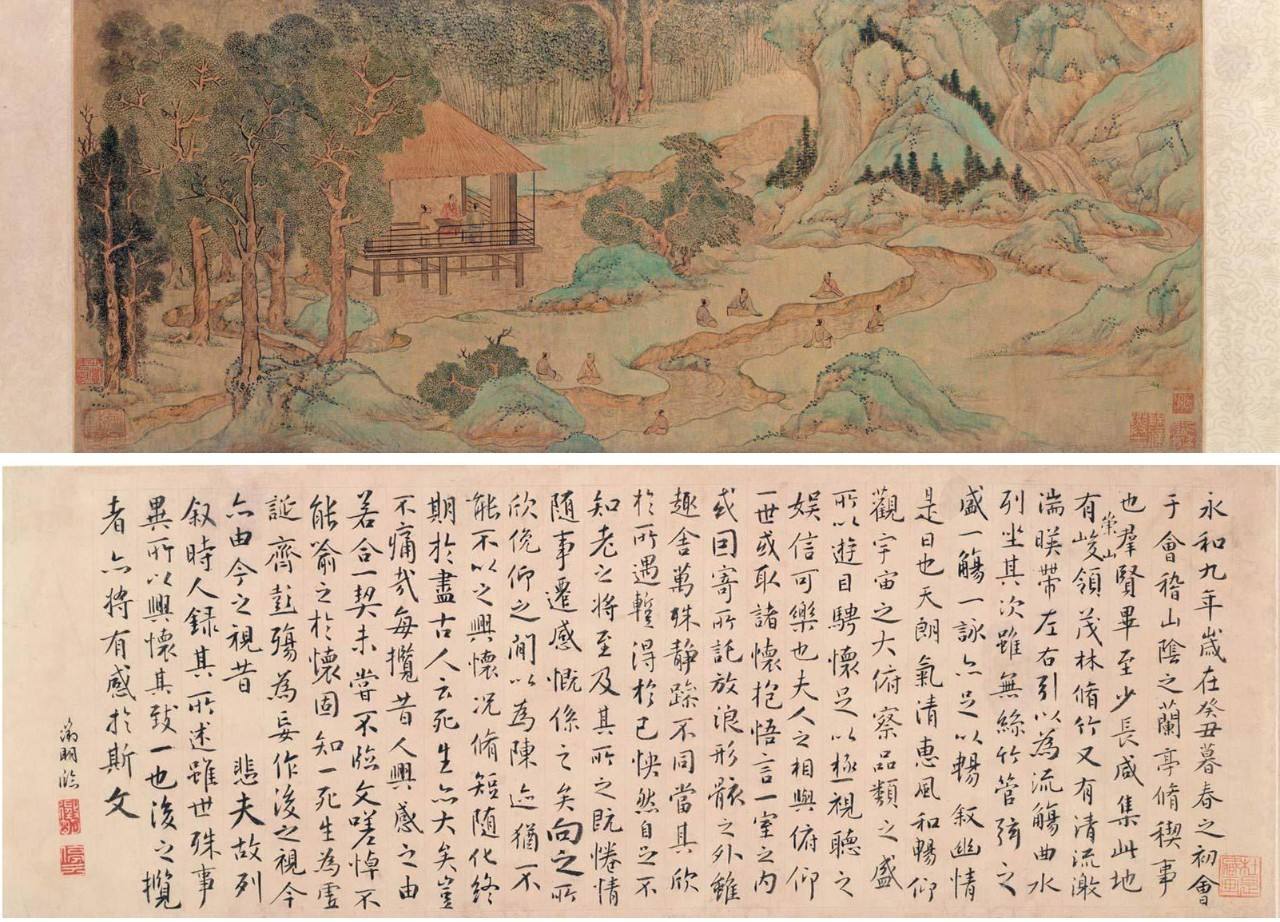 永和九年歲在癸丑暮春之初會
于會稽山陰之蘭亭脩禊事
也羣賢畢至少長咸集此地
崇山
有峻領茂林脩竹又有清流激
湍暎帶左右引以為流觴曲水
列坐其次雖無絲竹管弦之
盛一觴一詠亦足以暢叙幽情
是日也天朗氣清惠風和暢仰
觀宇宙之大俯察品類之盛
所以遊目騁懷足以極視聽之
娛信可樂也夫人之相與俯仰
一世或取諸懷抱悟言一室之內
或因寄所託放浪形骸之外雖
趣舍萬殊静躁不同當其欣
於所遇蹔得於己怏然自足不
知老之將至及其所之既惓情
随事遷感慨係之矣向之所
欣俛仰之閒以為陳迹猶不
能不以之興懷況脩短随化終
期於盡古人云死生亦大矣豈
不痛哉每攬昔人興感之由
若合一契未嘗不臨文嗟悼不
能喻之於懷固知一死生為虛
誕齊彭殤為妄作後之視今
亦由今之視昔 悲夫故列
叙時人錄其所述雖世殊事
異所以興懷其致一也後之攬
者亦將有感於斯文
徵明臨